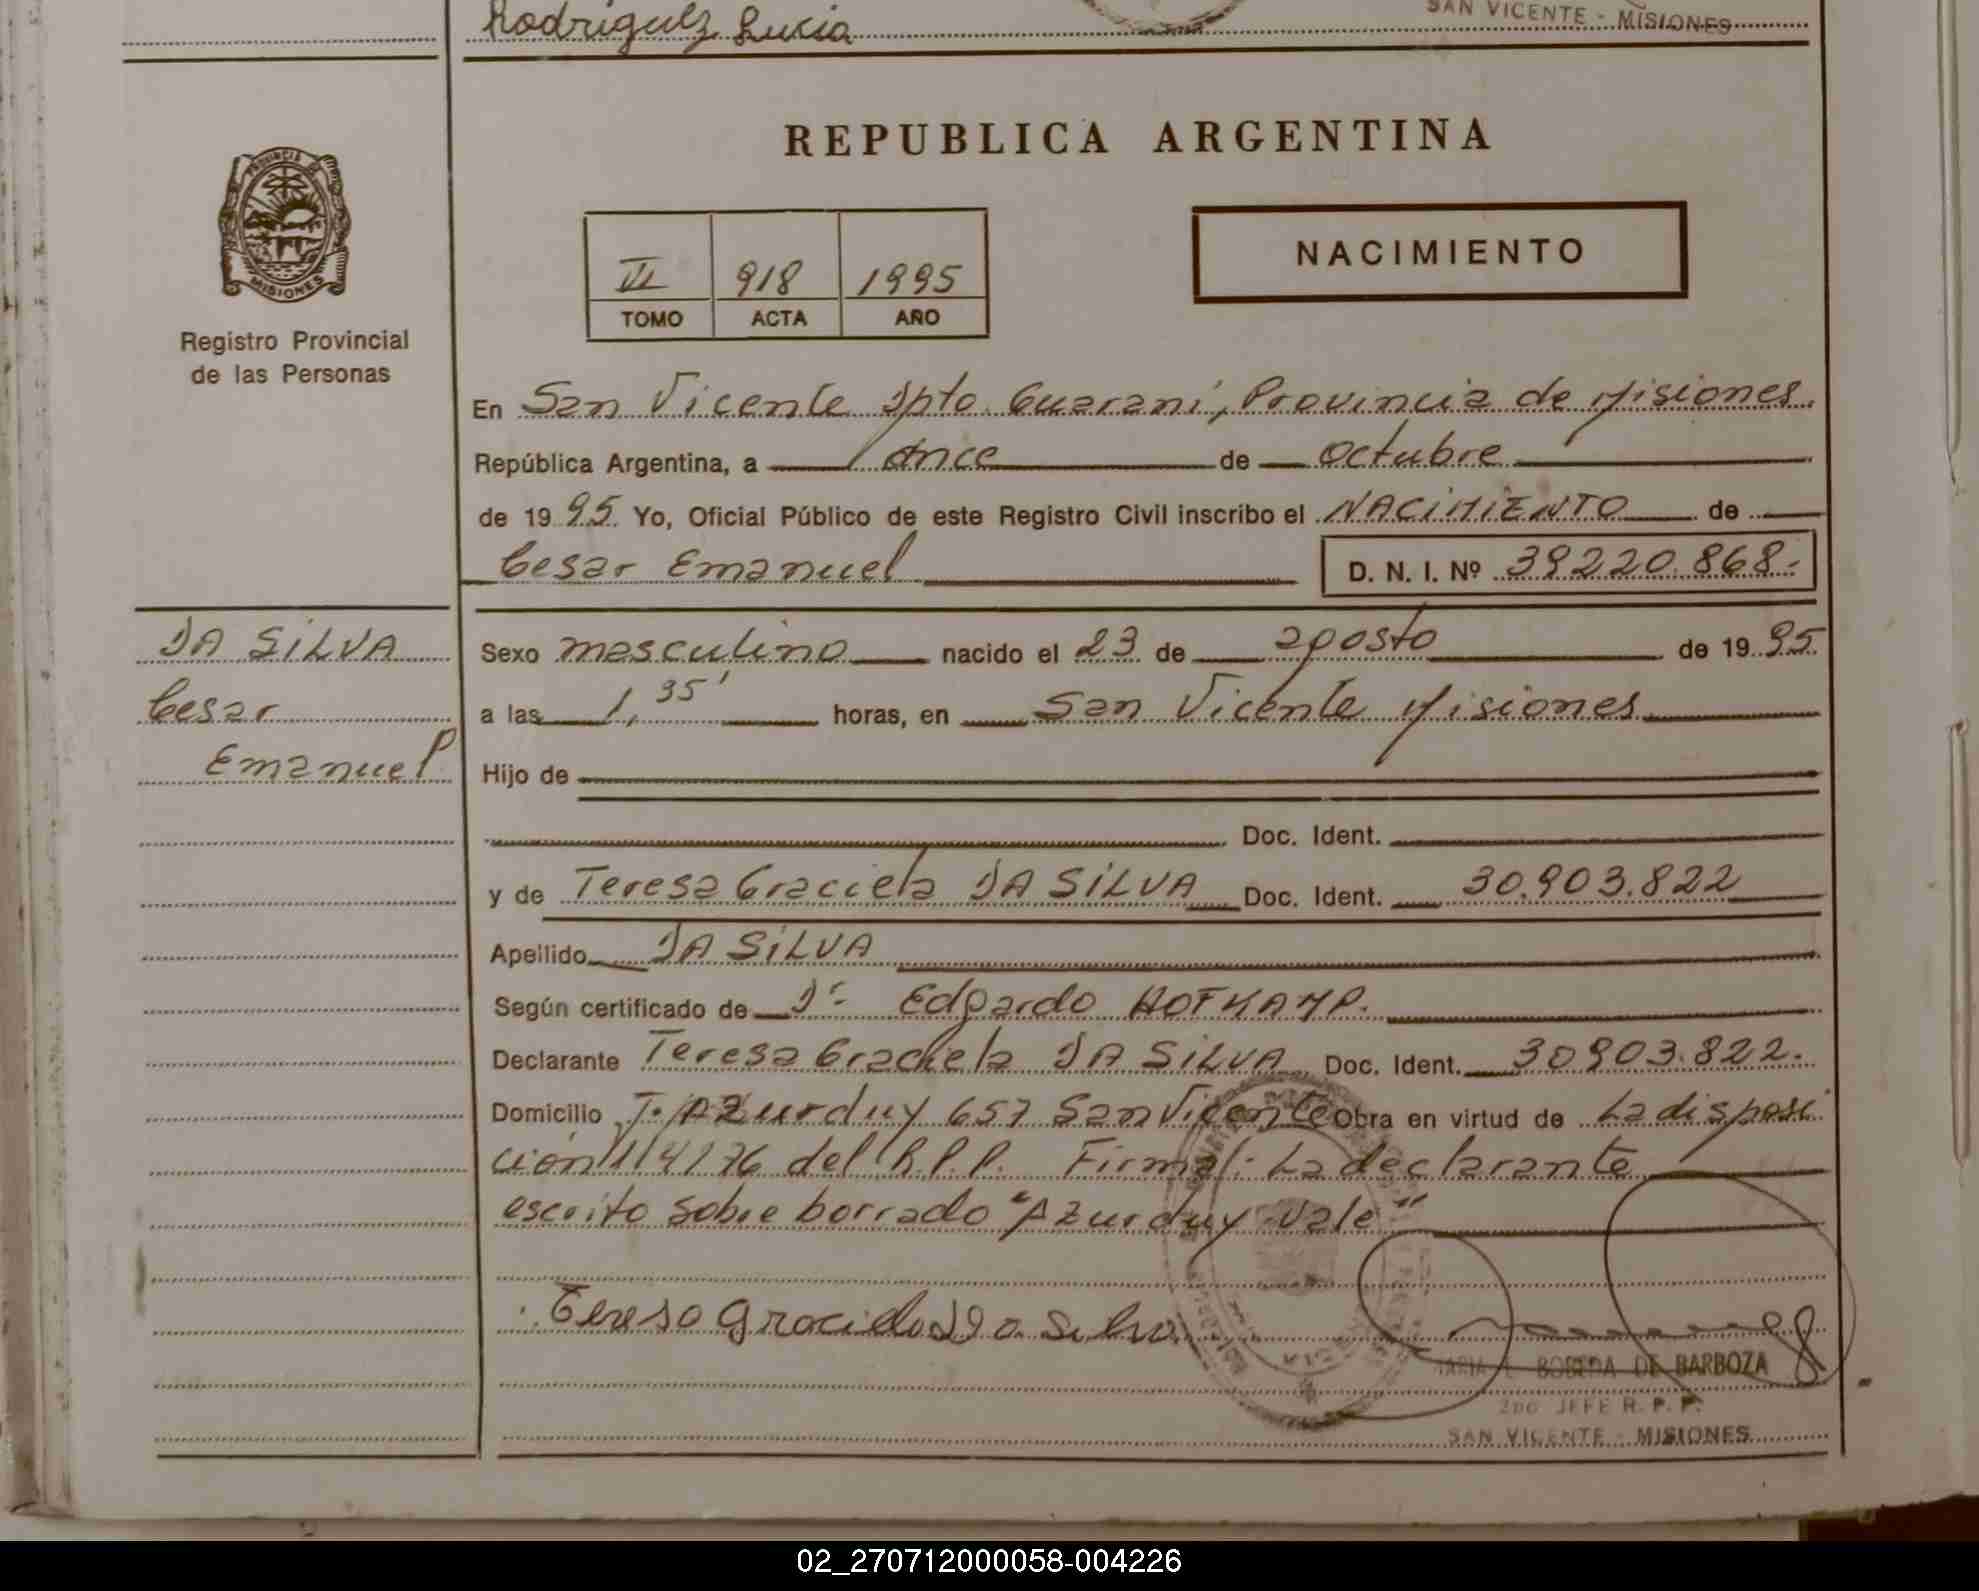 Rodriguez Lucia
SAN VICENTE - MISIONES
REPUBLICA ARGENTINA
PROVINCIA DE
MISIONES
Registro Provincial
de las Personas
VI 918 1995
TOMO ACTA AÑO
NACIMIENTO
En San Vicente Dpto. Guarani, Provincia de Misiones.
República Argentina, a once de octubre
de 1995. Yo, Oficial Público de este Registro Civil inscribo el NACIMIENTO de
Cesar Emanuel D. N. I. Nº 39220.868.-
DA SILVA
Cesar
Emanuel
Sexo masculino nacido el 23 de agosto de 1995.
a las 1,35' horas, en San Vicente Misiones
Hijo de
Doc. Ident.
y de Teresa Graciela DA SILVA Doc. Ident. 30.903.822
Apellido DA SILVA
Según certificado de Dr. Edgardo HOFKAMP.
Declarante Teresa Graciela DA SILVA Doc. Ident. 30903.822.
Domicilio J. AZurduy 657 San Vicente Obra en virtud de La disposi
ción 114/76 del R.P.P. Firma: La declarante
escrito sobre borrado "AZurduy-Vale"
Teresa Graciela Da Silva
MARIA E. BOBEDA DE BARBOZA
2DO JEFE R. P. P.
SAN VICENTE - MISIONES
02_270712000058-004226